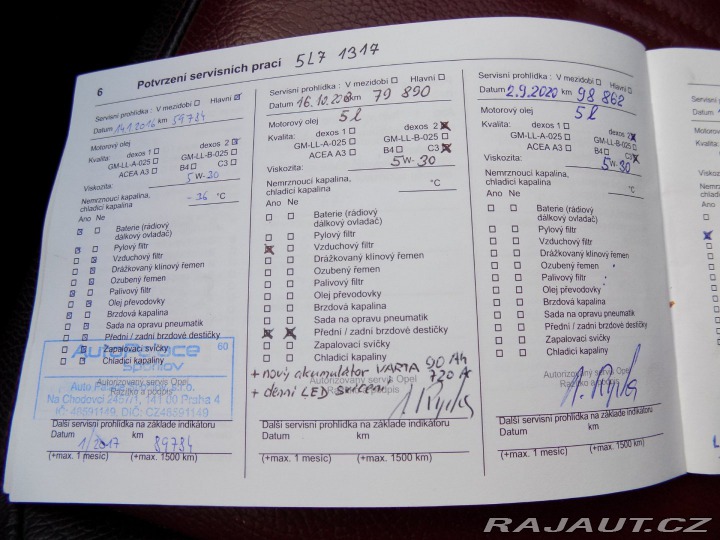 6 Potvrzení servisních prací 5L7 1317
Servisní prohlídka : V mezidobí Hlavní
Datum 14.1.2016 km 59784
Motorový olej
Kvalita: dexos 1 dexos 2
GM-LL-A-025 GM-LL-B-025
ACEA A3 B4 C3
Viskozita: 5W-30
Nemrznoucí kapalina,
chladicí kapalina -36 °C
Ano Ne
Baterie (rádiový
dálkový ovladač)
Pylový filtr
Vzduchový filtr
Drážkovaný klínový řemen
Ozubený řemen
Palivový filtr
Olej převodovky
Brzdová kapalina
Sada na opravu pneumatik
Přední / zadní brzdové destičky
Zapalovací svíčky
Chladicí kapaliny
60
Auto Palace Spořilov
Na Chodovci 2457/1, 141 00 Praha 4
IČ: 48591149, DIČ: CZ48591149
Autorizovaný servis Opel
Razítko a podpis
Další servisní prohlídka na základe indikátoru
Datum km
1/2017 89784
(+max. 1 mesíc) (+max. 1500 km)
Servisní prohlídka : V mezidobí Hlavní
Datum 16.10.2018 km 79 890
Motorový olej 5l
Kvalita: dexos 1 dexos 2
GM-LL-A-025 GM-LL-B-025
ACEA A3 B4 C3
Viskozita: 5W-30
Nemrznoucí kapalina,
chladicí kapalina °C
Ano Ne
Baterie (rádiový
dálkový ovladač)
Pylový filtr
Vzduchový filtr
Drážkovaný klínový řemen
Ozubený řemen
Palivový filtr
Olej převodovky
Brzdová kapalina
Sada na opravu pneumatik
Přední / zadní brzdové destičky
Zapalovací svíčky
Chladicí kapaliny
+ nový akumulátor VARTA 90 Ah
720 A
Autorizovaný servis Opel
Razítko a podpis
+ denní LED svícení
Další servisní prohlídka na základe indikátoru
Datum km
(+max. 1 mesíc) (+max. 1500 km)
Servisní prohlídka : V mezidobí Hlavní
Datum 2.9.2020 km 98 868
Motorový olej 5l
Kvalita: dexos 1 dexos 2
GM-LL-A-025 GM-LL-B-025
ACEA A3 B4 C3
Viskozita: 5W-30
Nemrznoucí kapalina,
chladicí kapalina °C
Ano Ne
Baterie (rádiový
dálkový ovladač)
Pylový filtr
Vzduchový filtr
Drážkovaný klínový řemen
Ozubený řemen
Palivový filtr
Olej převodovky
Brzdová kapalina
Sada na opravu pneumatik
Přední / zadní brzdové destičky
Zapalovací svíčky
Chladicí kapaliny
Autorizovaný servis Opel
Razítko a podpis
Další servisní prohlídka na základe indikátoru
Datum km
(+max. 1 mesíc) (+max. 1500 km)
RAJAUT.CZ